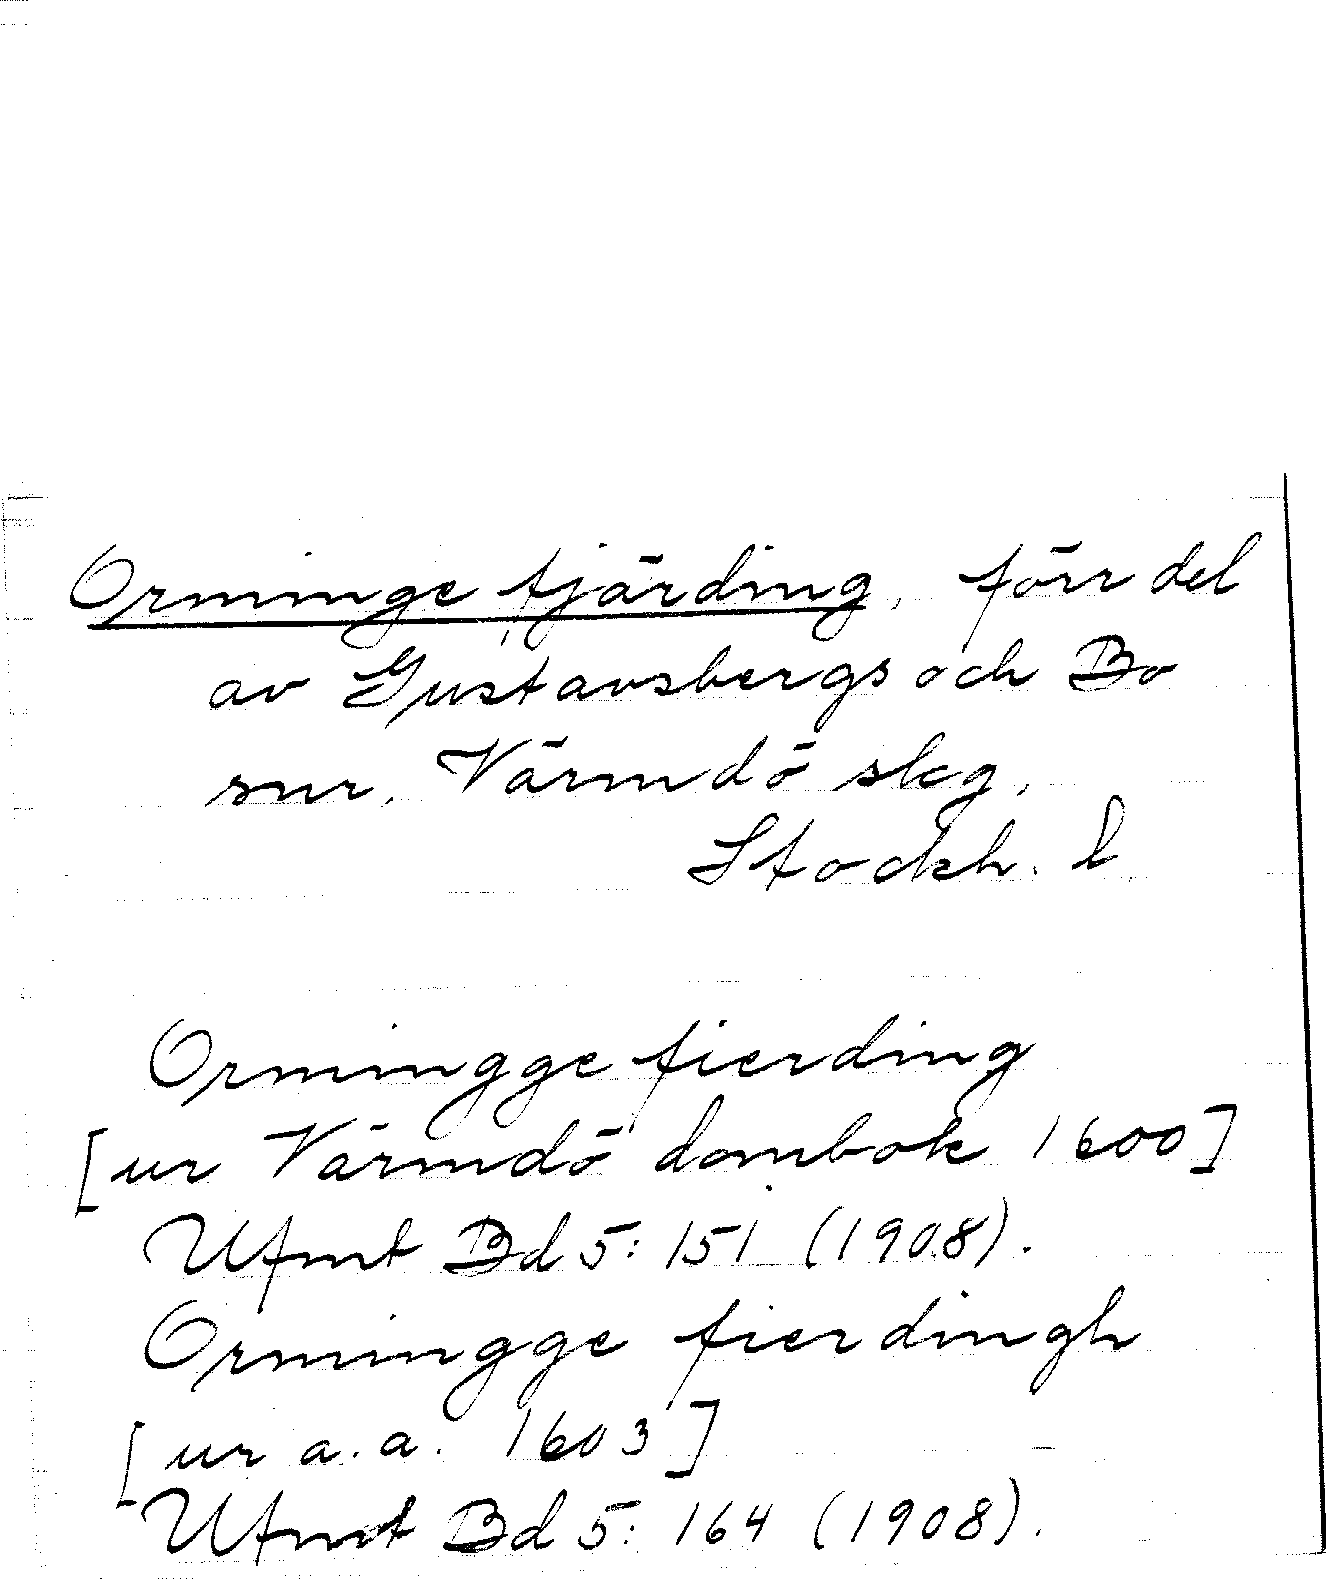 Orminge fjärding, förr del
av Gustavsbergs och Bo
snr, Värmdö skg,
Stockh. l
Ormingge fierding
[ur Värmdö dombok 1600]
Ufmt Bd 5: 151 (1908).
Ormingge fierdingh
[ur a.a. 1603]
Ufmt Bd 5: 164 (1908).